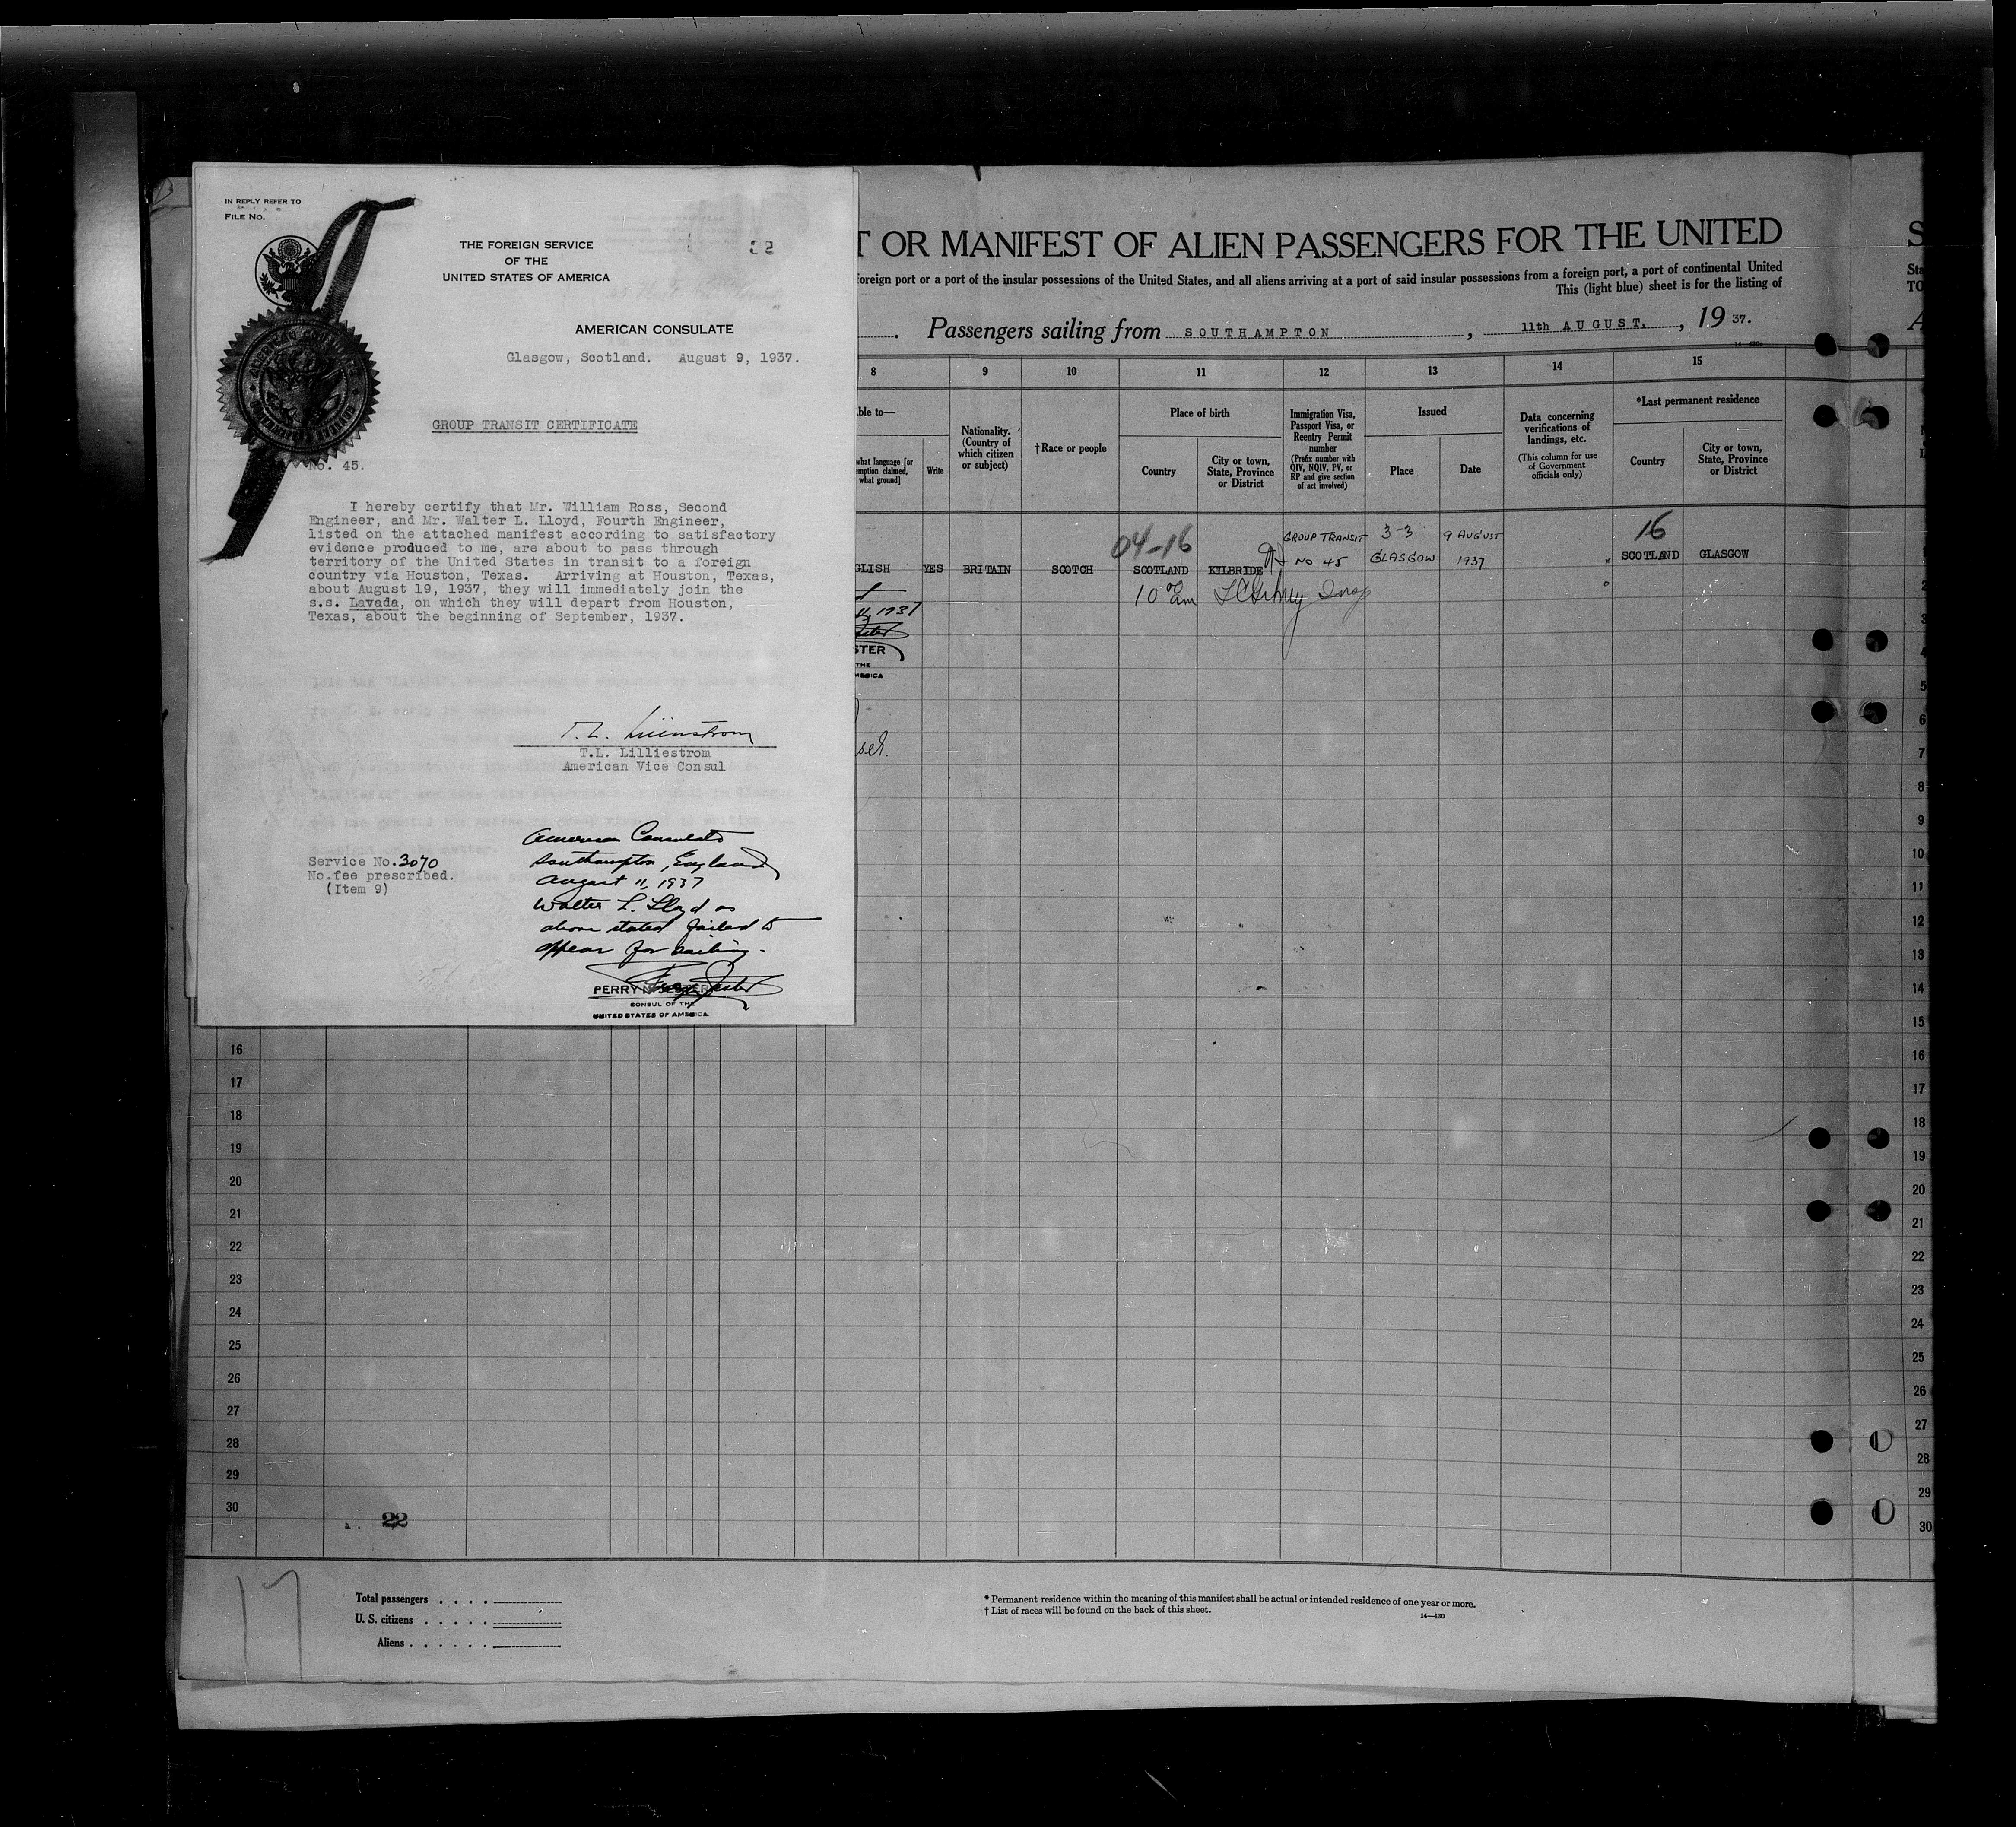 IN REPLY REFER TO
FILE NO.
THE FOREIGN SERVICE
OF THE
UNITED STATES OF AMERICA
AMERICAN CONSULATE
Glasgow, Scotland. August 9, 1937.
GROUP TRANSIT CERTIFICATE
No. 45.
I hereby certify that Mr. William Ross, Second
Engineer, and Mr. Walter L. Lloyd, Fourth Engineer,
listed on the attached manifest according to satisfactory
evidence produced to me, are about to pass through
territory of the United States in transit to a foreign
country via Houston, Texas. Arriving at Houston, Texas,
about August 19, 1937, they will immediately join the
s.s. Lavada, on which they will depart from Houston,
Texas, about the beginning of September, 1937.
T.L. Lilliestrom
American Vice Consul
Service No. 3070
No. fee prescribed.
(Item 9)
American Consulate
Southampton, England
August 11, 1937
Walter L. Lloyd as
above stated failed to
appear for sailing.
PERRY N. JESTER
CONSUL OF THE
UNITED STATES OF AMERICA
T OR MANIFEST OF ALIEN PASSENGERS FOR THE UNITED
foreign port or a port of the insular possessions of the United States, and all aliens arriving at a port of said insular possessions from a foreign port, a port of continental United
This (light blue) sheet is for the listing of
Passengers sailing from SOUTHAMPTON, 11th AUGUST., 19 37.
8 9 10 11 12 13 14 15
ble to—
what language [or
emption claimed,
what ground]
Write
Nationality.
(Country of
which citizen
or subject)
†Race or people
Place of birth
Country
City or town,
State, Province
or District
Immigration Visa,
Passport Visa, or
Reentry Permit
number
(Prefix number with
QIV, NQIV, PV, or
RP and give section
of act involved)
Issued
Place
Date
Data concerning
verifications of
landings, etc.
(This column for use
of Government
officials only)
*Last permanent residence
Country
City or town,
State, Province
or District
04-16 GROUP TRANSIT 3-3 9 AUGUST 16
GLISH YES BRITAIN SCOTCH SCOTLAND KILBRIDE NO 45 GLASGOW 1937 SCOTLAND GLASGOW
10 00 am
11, 1937
STER
THE
MERICA
2
3
4
5
6
7
8
9
10
11
12
13
14
15
16
17
18
19
20
21
22
23
24
25
26
27
28
29
30
16
17
18
19
20
21
22
23
24
25
26
27
28
29
30
22
17
Total passengers
U. S. citizens
Aliens
* Permanent residence within the meaning of this manifest shall be actual or intended residence of one year or more.
† List of races will be found on the back of this sheet.
14—430